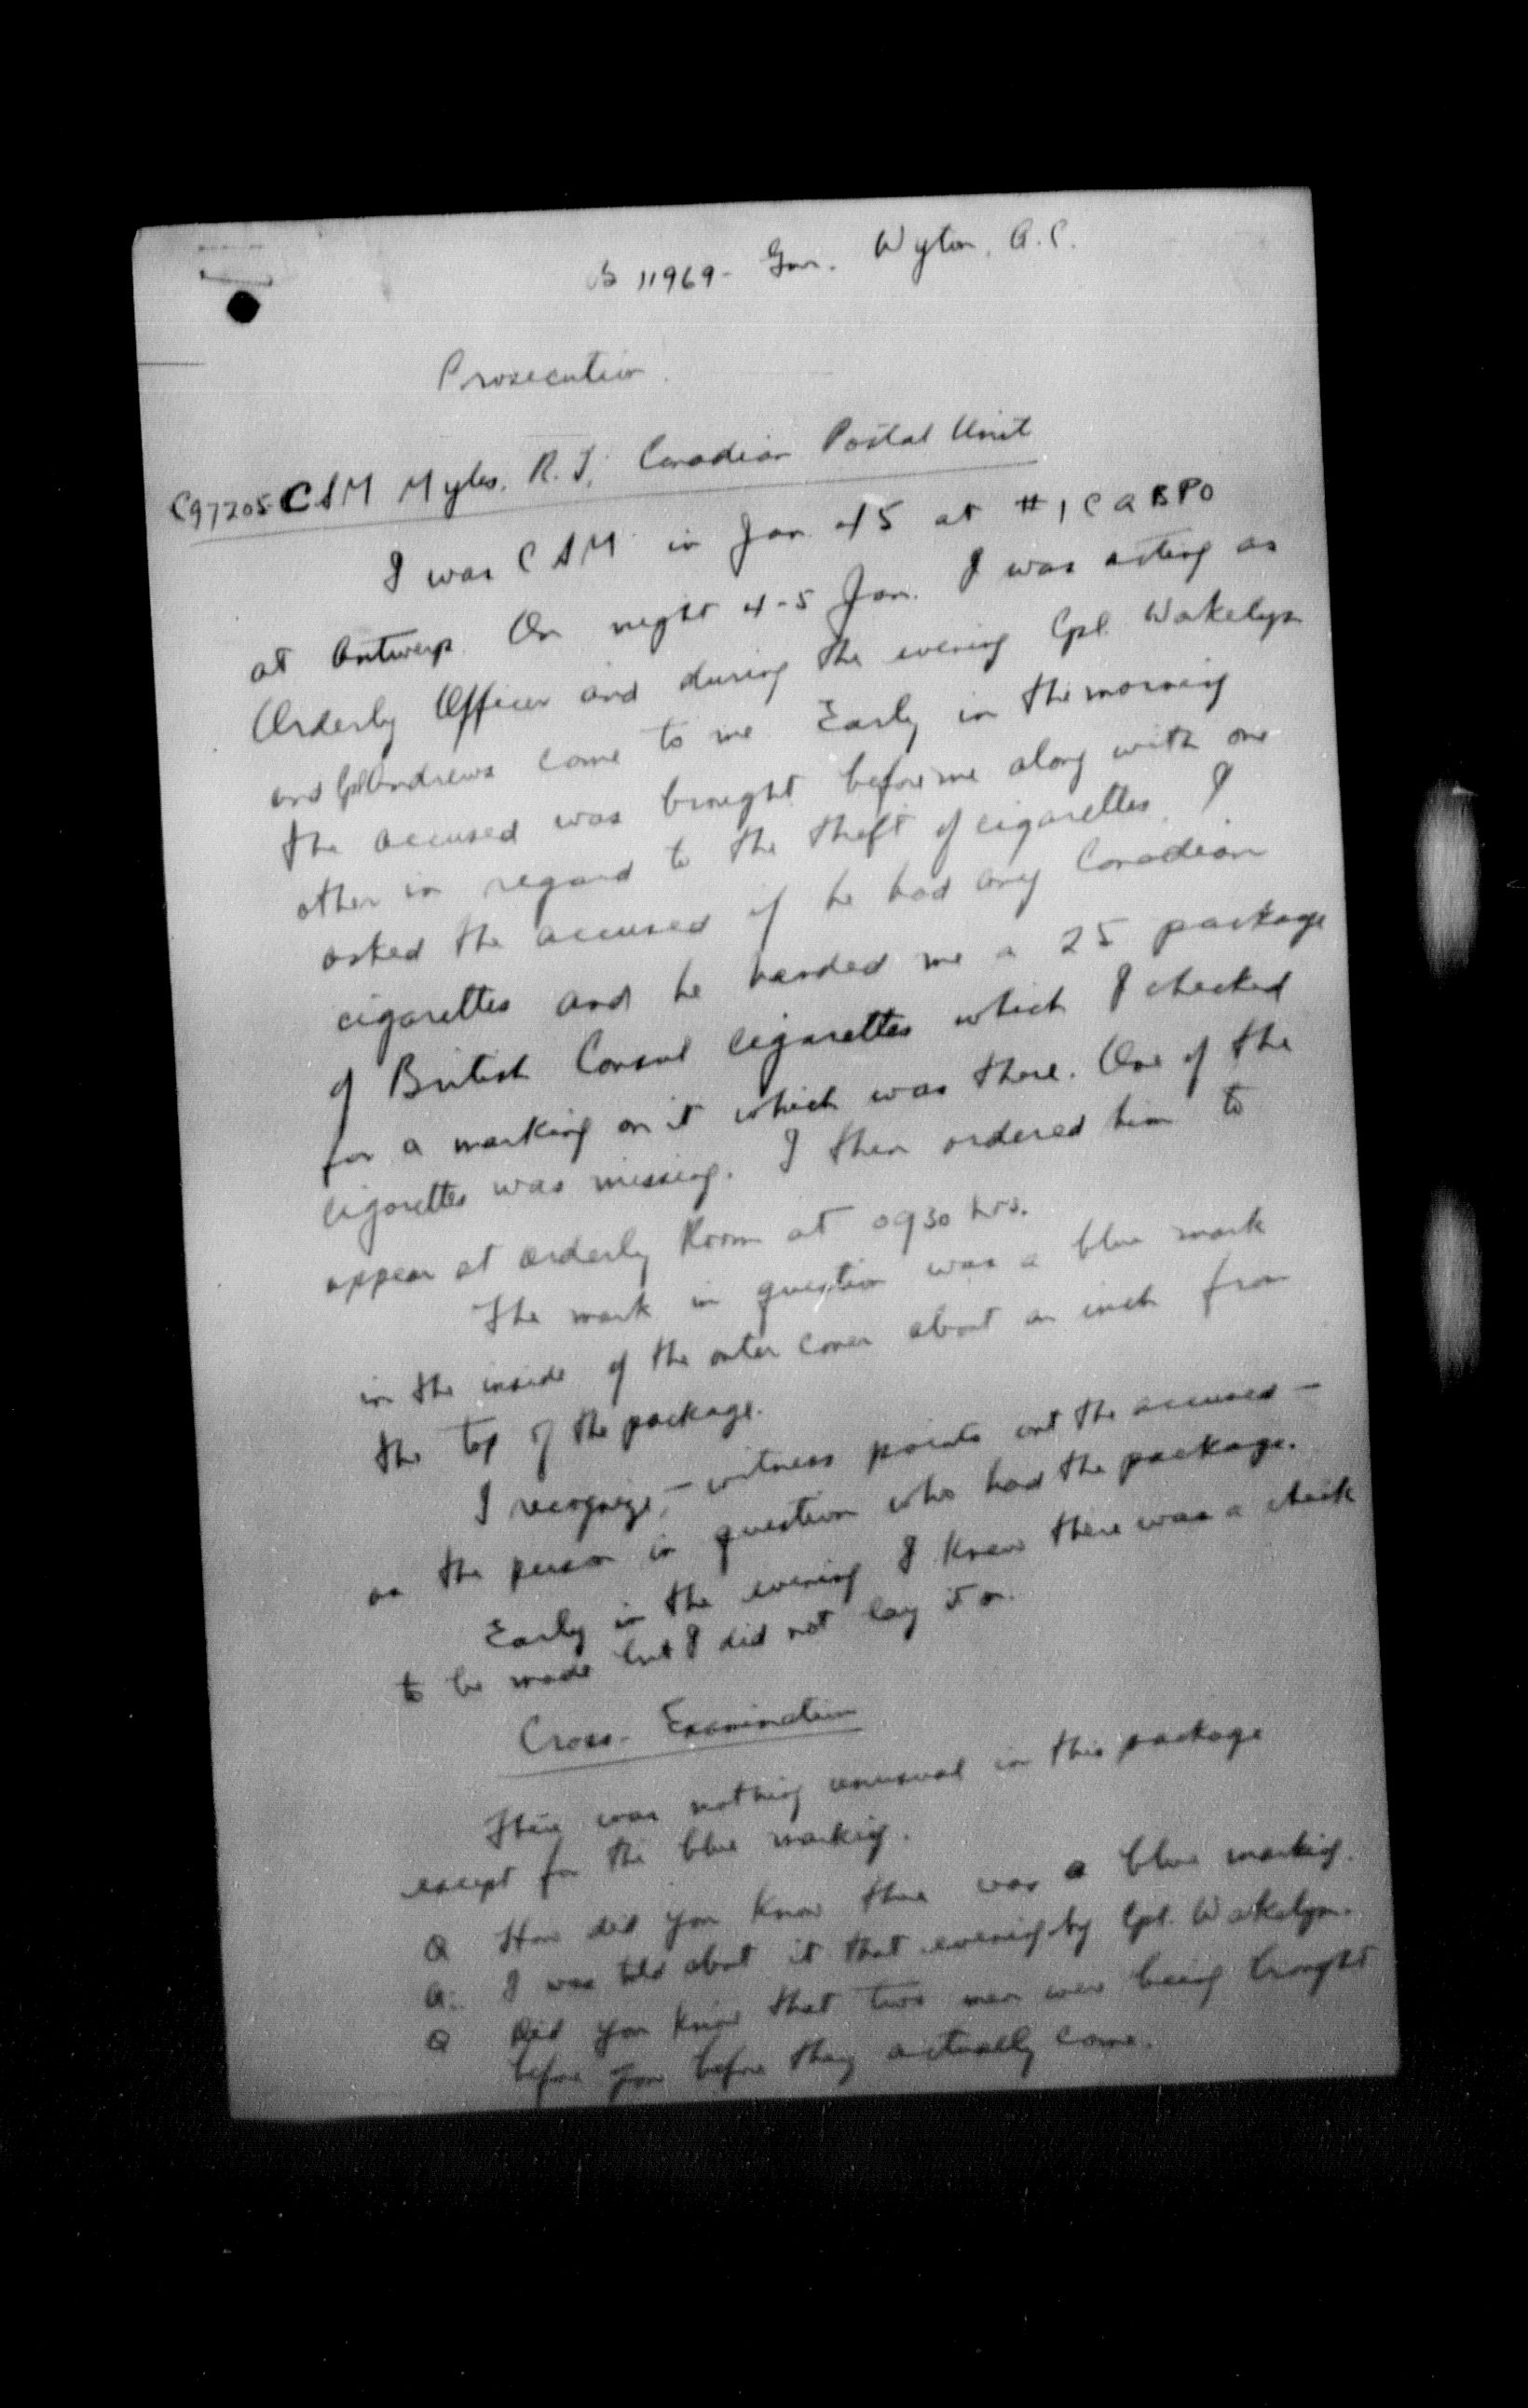 B 11969 - Gnr. Wyton, A.C.
Prosecution.
C97205 CSM Myles, R.J. Canadian Postal Unit
I was CSM in Jan 45 at #1 C A B P O
at Antwerp. On night 4-5 Jan. I was acting as
Orderly Officer and during the evening Cpl. Wakelyn
and Cpl Andrews came to me. Early in the morning
the accused was brought before me along with one
other in regard to the theft of cigarettes. I
asked the accused if he had any Canadian
cigarettes and he handed me a 25 package
of British Consul cigarettes which I checked
for a marking on it which was there. One of the
cigarettes was missing. I then ordered him to
appear at Orderly Room at 0930 hrs.
The mark in question was a blue mark
in the inside of the outer cover about an inch from
the top of the package.
I recognize, - witness points out the accused -
as the person in question who had the package.
Early in the evening I knew there was a check
to be made but I did not lay it on.
Cross-Examination
There was nothing unusual in this package
except for the blue marking.
Q How did you know there was a blue marking.
A: I was told about it that evening by Cpl. Wakelyn.
Q Did you know that two men were being brought
before you before they actually came.